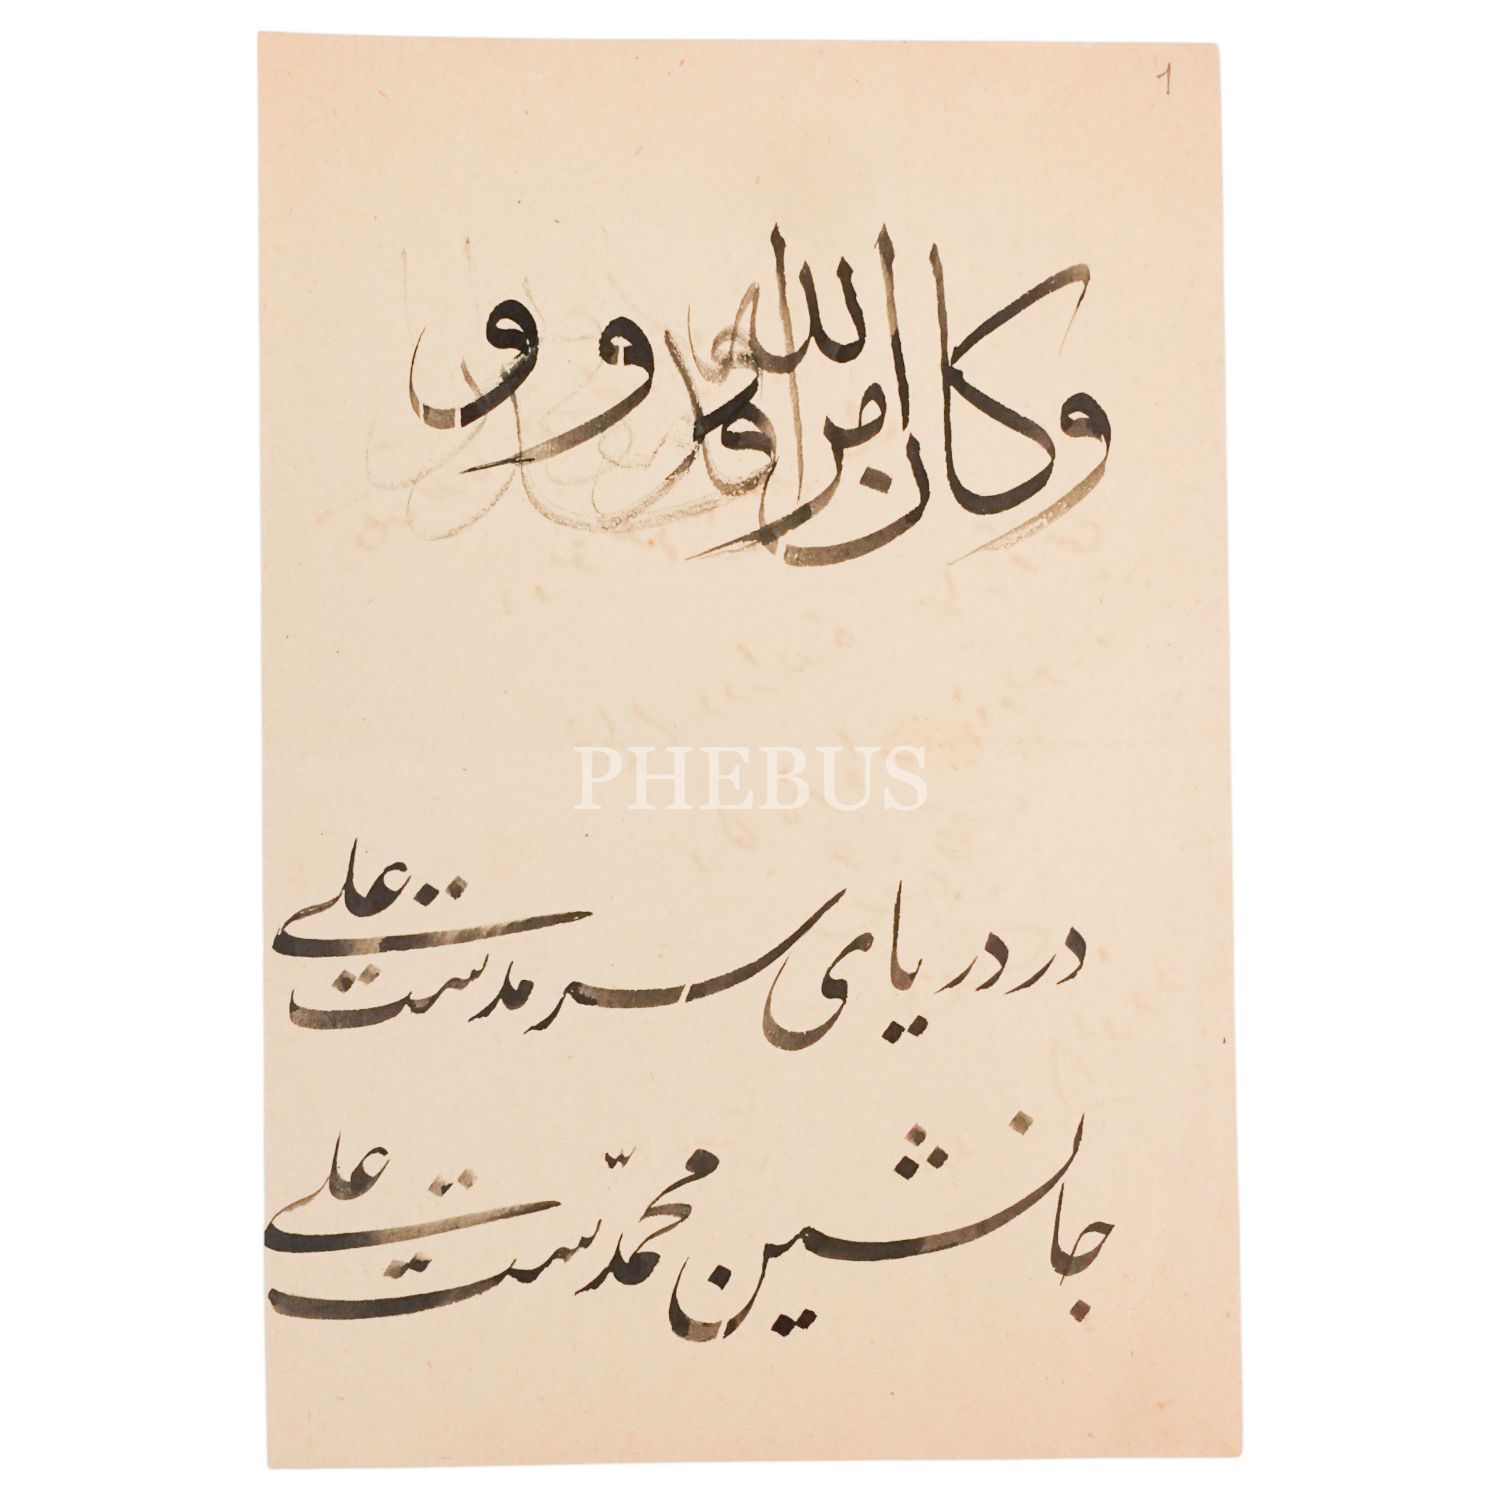 1
وكان امر الله و و
PHEBUS
در دریای سرمدست علی
جانشین محمّدست علی